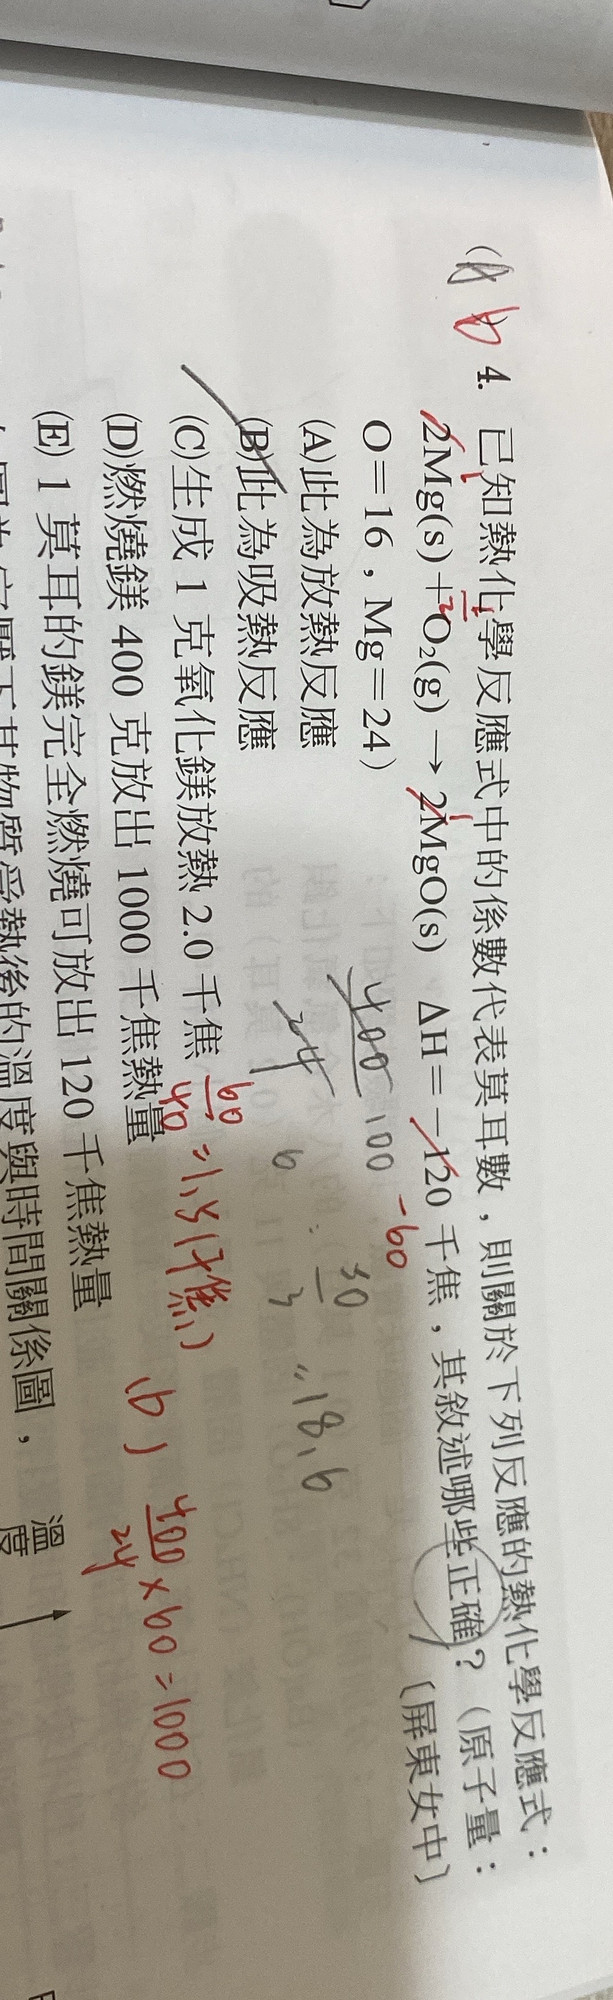 (A D) 4. 已知熱化學反應式中的係數代表莫耳數，則關於下列反應的熱化學反應式：
2Mg(s)＋O₂(g) → 2MgO(s) ΔH＝－120 千焦，其敘述哪些正確？（原子量：
O＝16，Mg＝24） 〔屏東女中〕
(A)此為放熱反應
(B)此為吸熱反應
(C)生成 1 克氧化鎂放熱 2.0 千焦
(D)燃燒鎂 400 克放出 1000 千焦熱量
(E) 1 莫耳的鎂完全燃燒可放出 120 千焦熱量
溫度
1
1
-60
400
24
100
6
30
3
=18.6
60/40 =1.5(千焦)
400/24 × 60 = 1000